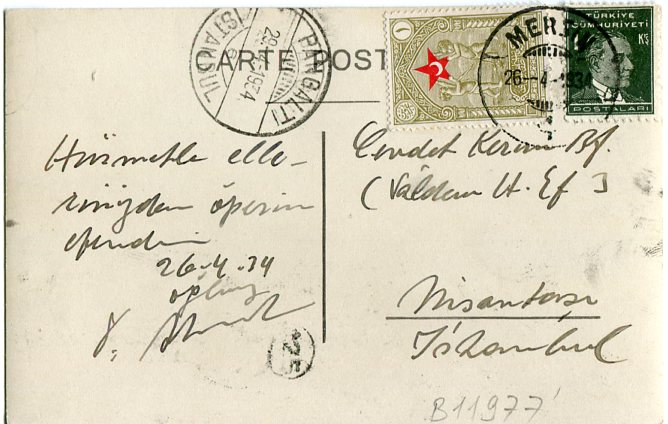 CARTE POST
PANGALTI
29.4.1934
İSTANBUL
1
MERSİN
26-4-934
TÜRKİYE
CUMHURİYETİ
POSTALARI
Hürmetle elle-
rinizden öperim
efendim
26.4.34
oğlunuz
Cevdet Kerim Bf.
(Valdem H. Ef)
Nişantaşı
İstanbul
B11977